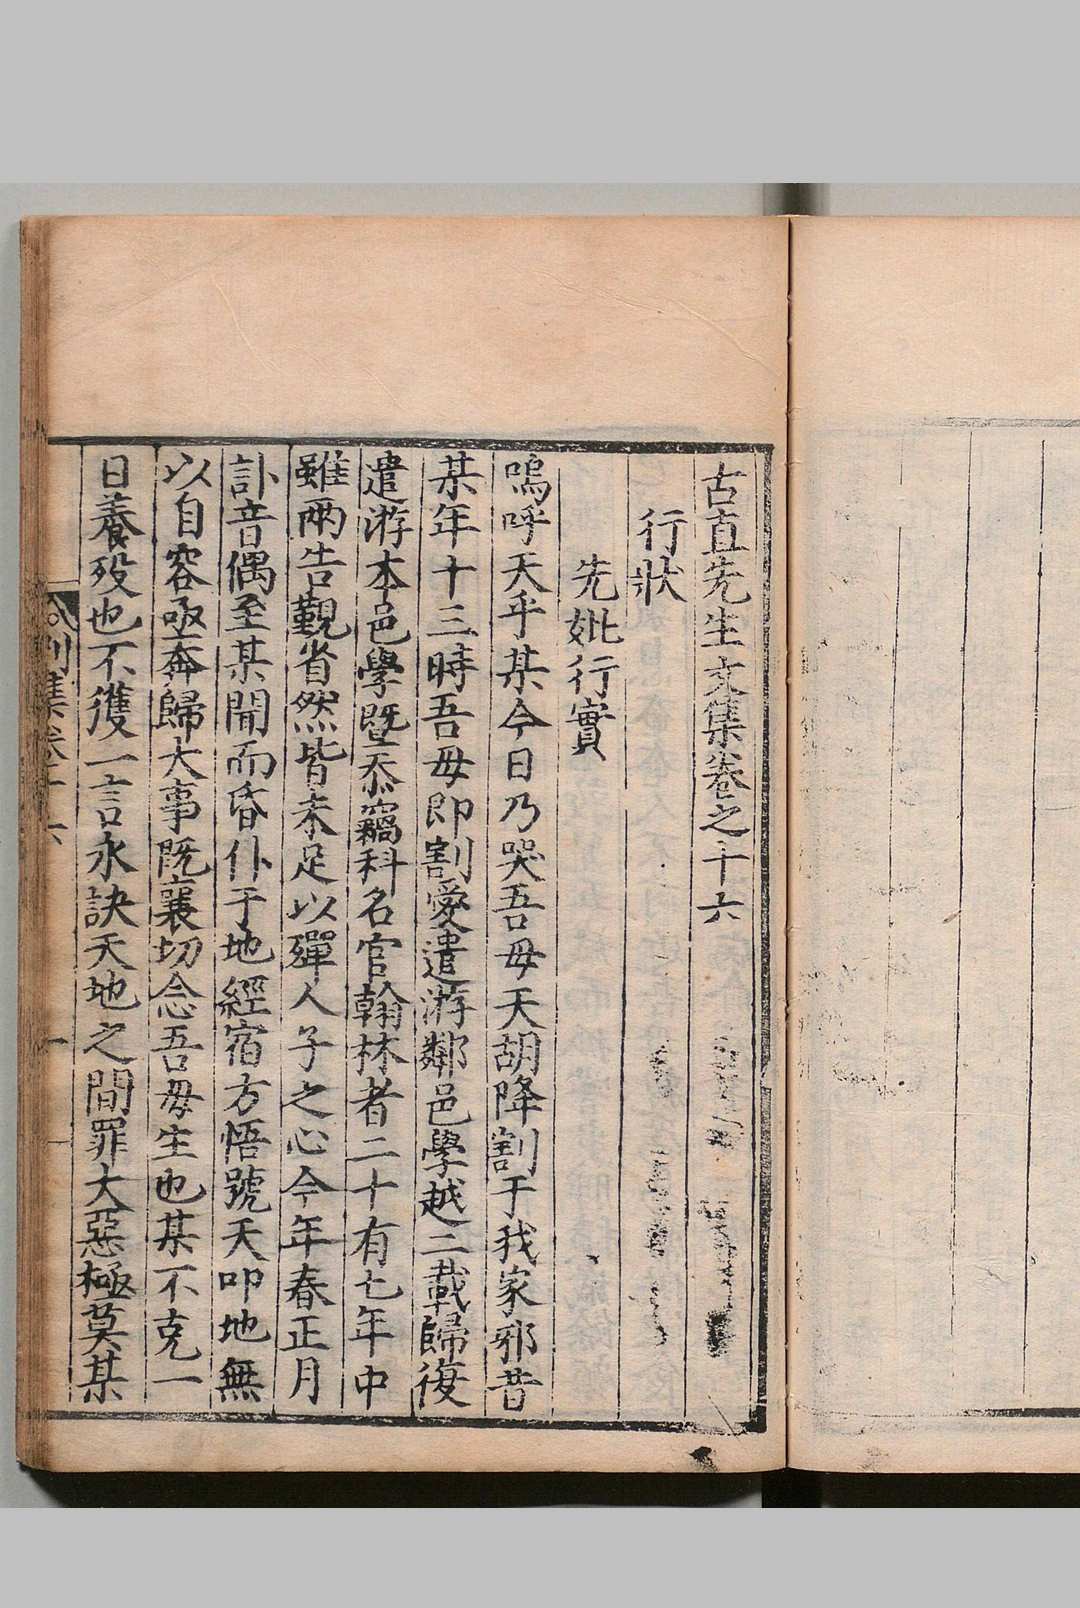 古直先生文集卷之十六
行狀
先妣行實
嗚呼天乎某今日乃哭吾母天胡降割于我家邪昔
某年十三時吾母即割愛遣游鄰邑學越二載歸復
遣游本邑學旣忝竊科名官翰林者二十有七年中
雖兩告覲省然皆未足以殫人子之心今年春正月
訃音偶至某聞而昏仆于地經宿方悟號天叩地無
以自容亟奔歸大事旣襄切念吾母生也某不克一
日養歿也不獲一言永訣天地之間罪大惡極莫某
別集卷十六
一